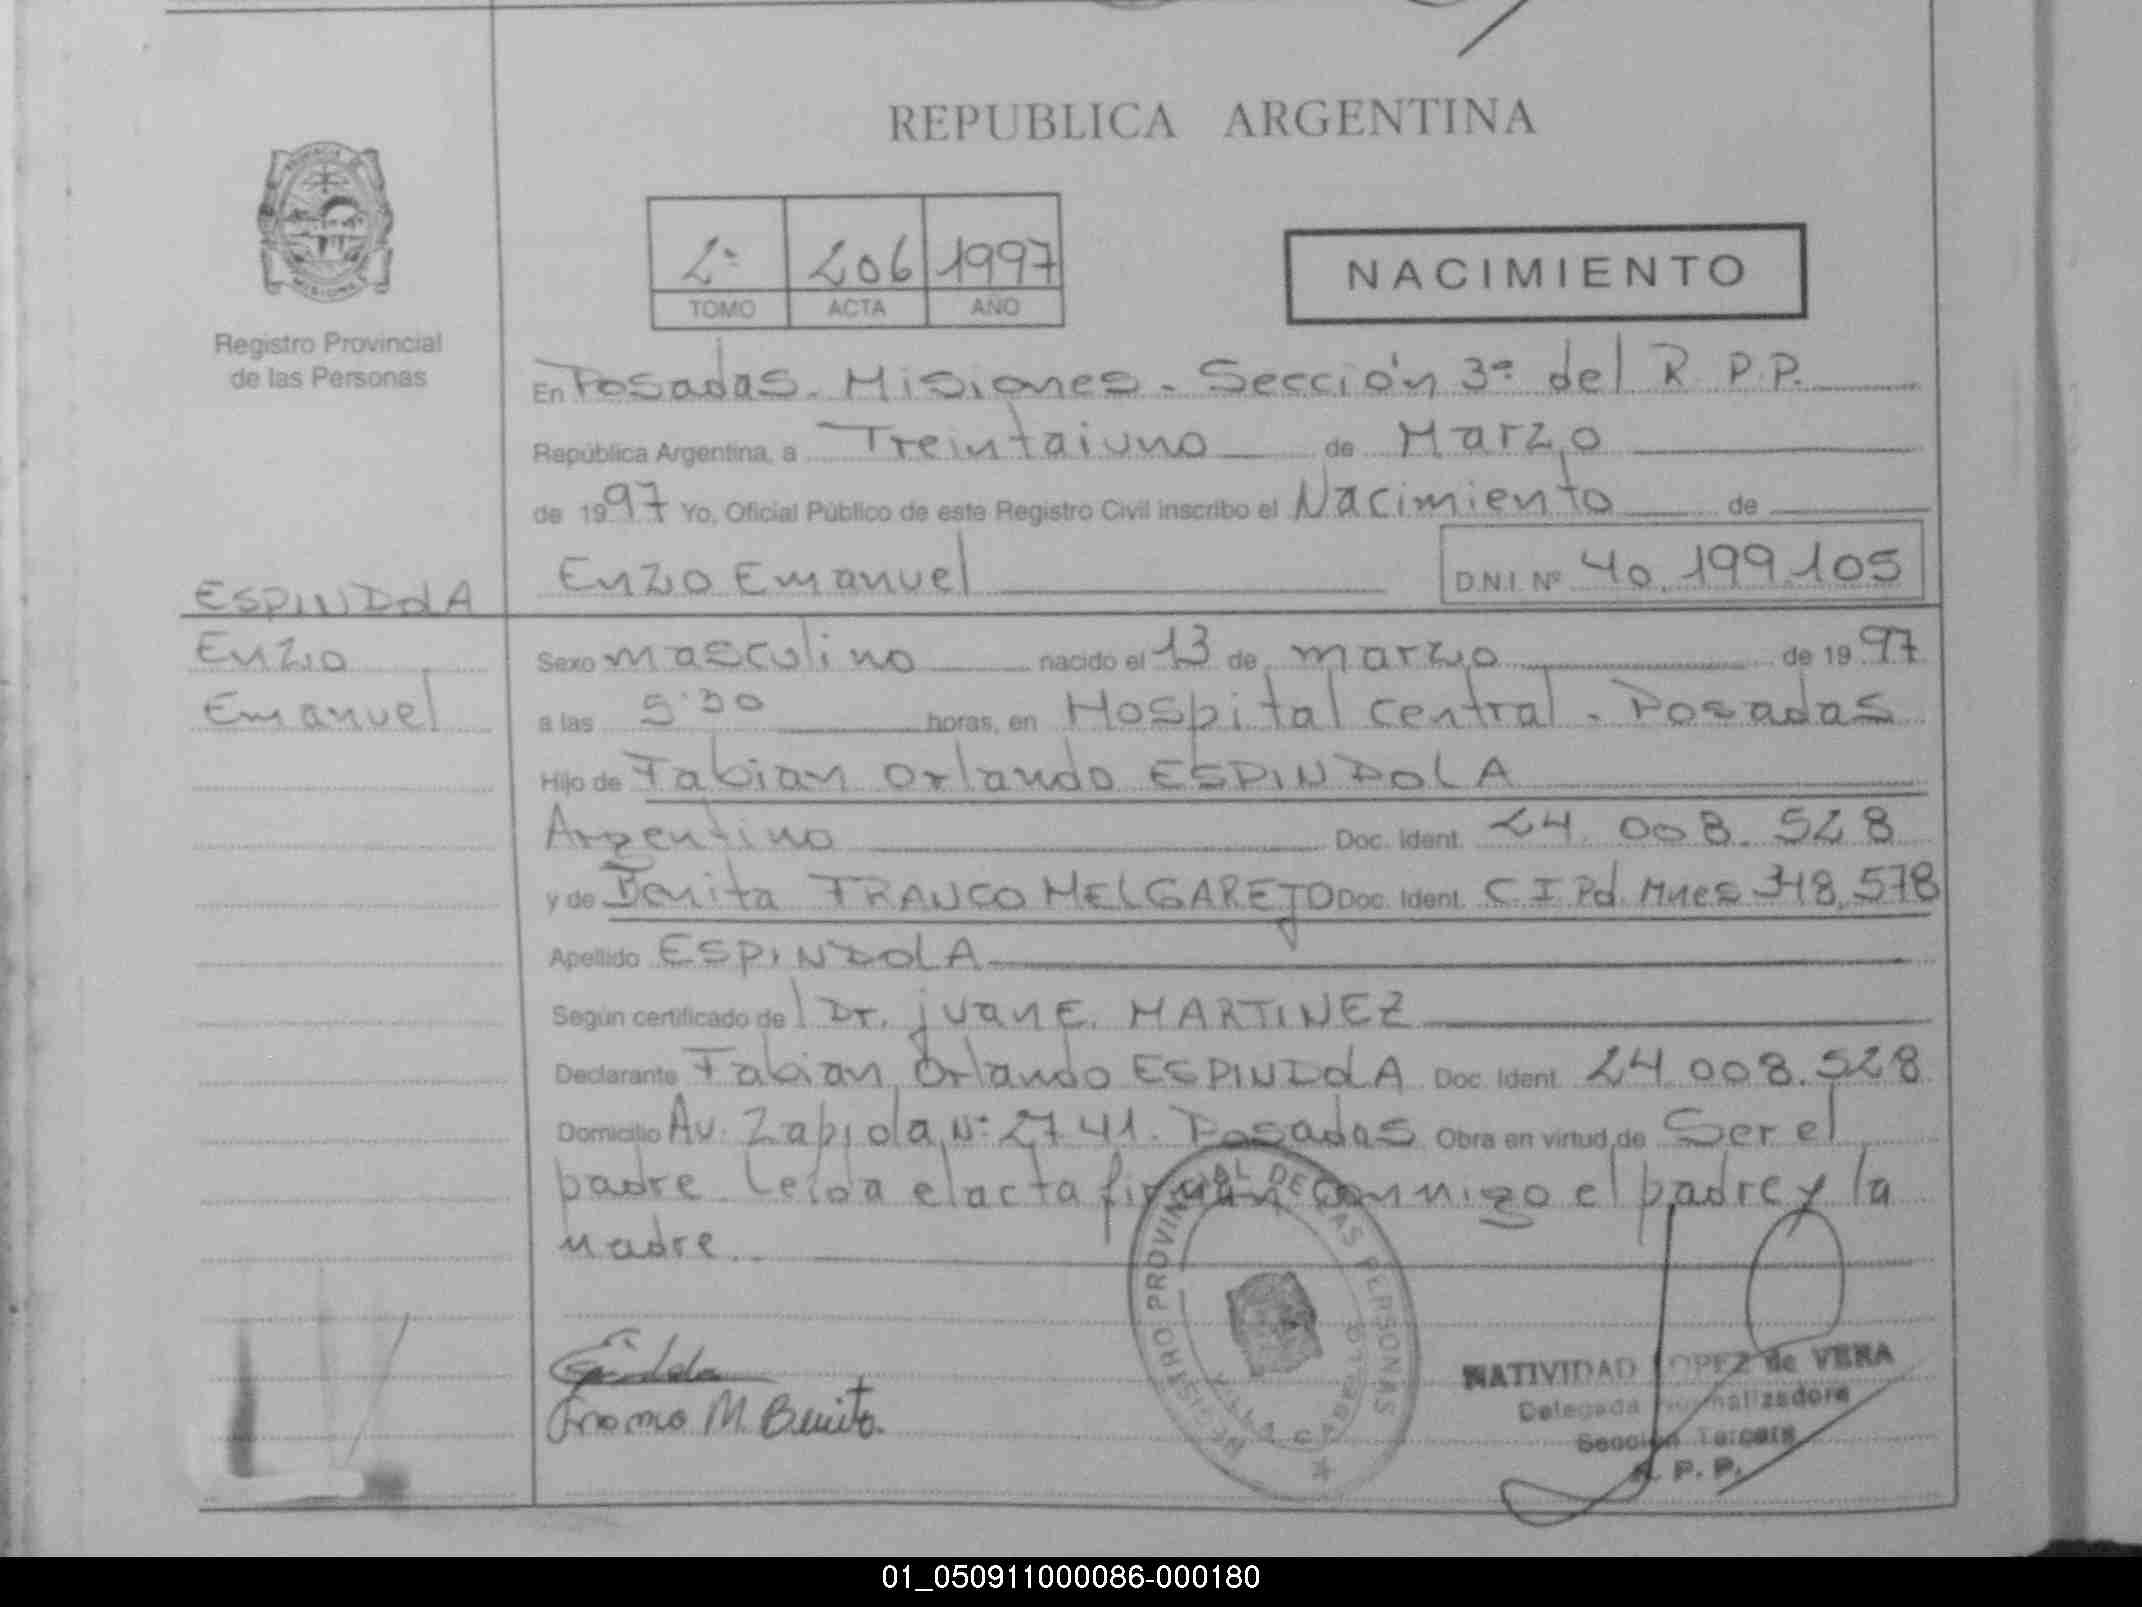 REPUBLICA ARGENTINA
2º 206 1997
TOMO ACTA AÑO
NACIMIENTO
Registro Provincial
de las Personas
En Posadas - Misiones - Sección 3ª del R. P. P.
República Argentina, a Treintaiuno de Marzo
de 1997 Yo, Oficial Público de este Registro Civil inscribo el Nacimiento de
Enzo Emanuel D.N.I. Nº 40.199.105
ESPINDOLA
Enzo
Emanuel
Sexo masculino nacido el 13 de marzo de 1997
a las 5:30 horas, en Hospital Central - Posadas
Hijo de Fabian Orlando ESPINDOLA
Argentino Doc. Ident. 24.008.528
y de Benita FRANCO MELGAREJO Doc. Ident. C.I. Pd. Mnes 348.578
Apellido ESPINDOLA
Según certificado del Dr. juan E. MARTINEZ
Declarante Fabian Orlando ESPINDOLA Doc. Ident. 24.008.528
Domicilio Av. Zapiola Nº 2741. Posadas Obra en virtud de Ser el
padre Leida el acta firman conmigo el padre y la
madre.
REGISTRO PROVINCIAL DE LAS PERSONAS
M. Benito.
NATIVIDAD LOPEZ de VERA
Delegada Normalizadora
Sección Tercera
R. P. P.
01_050911000086-000180